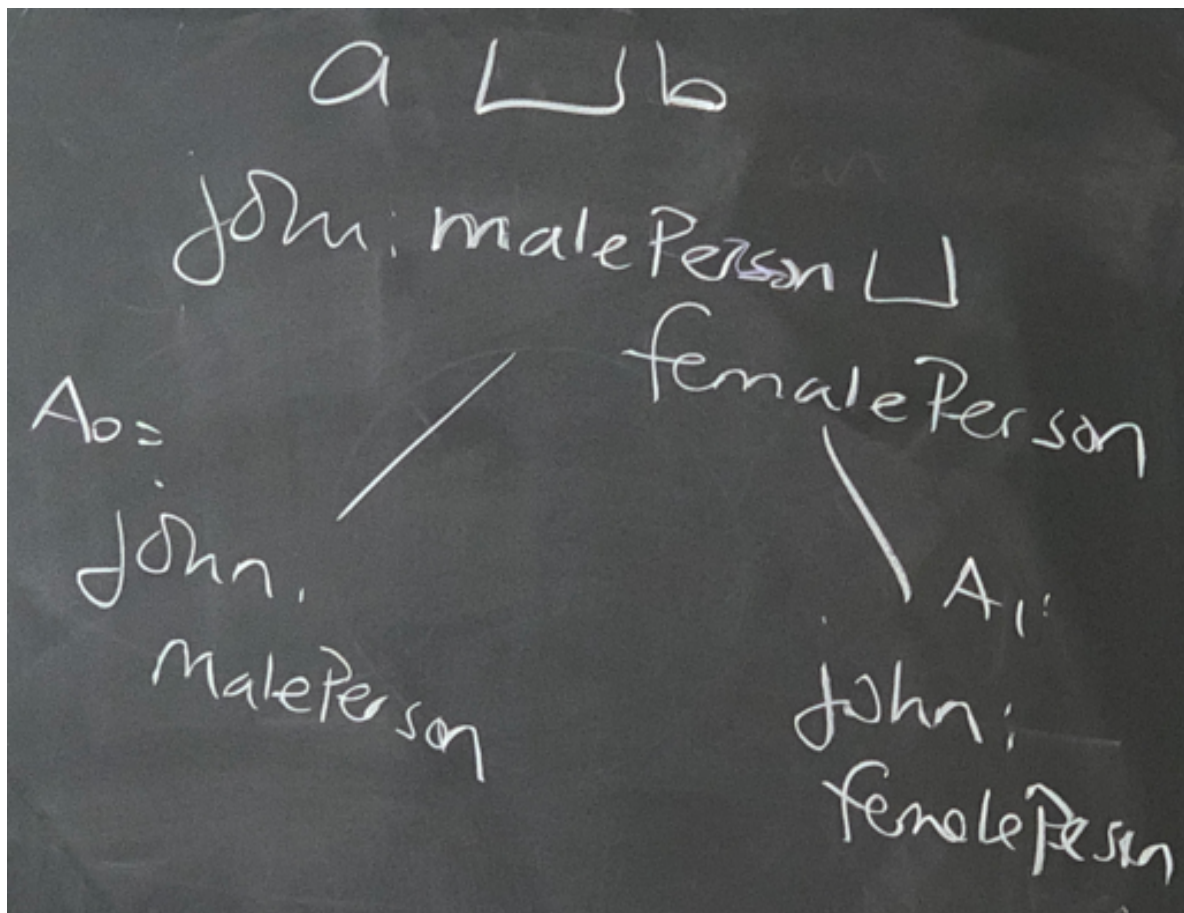 a ⊔ b
john: malePerson ⊔
femalePerson
A0=
john.
malePerson
A1:
john:
femalePerson